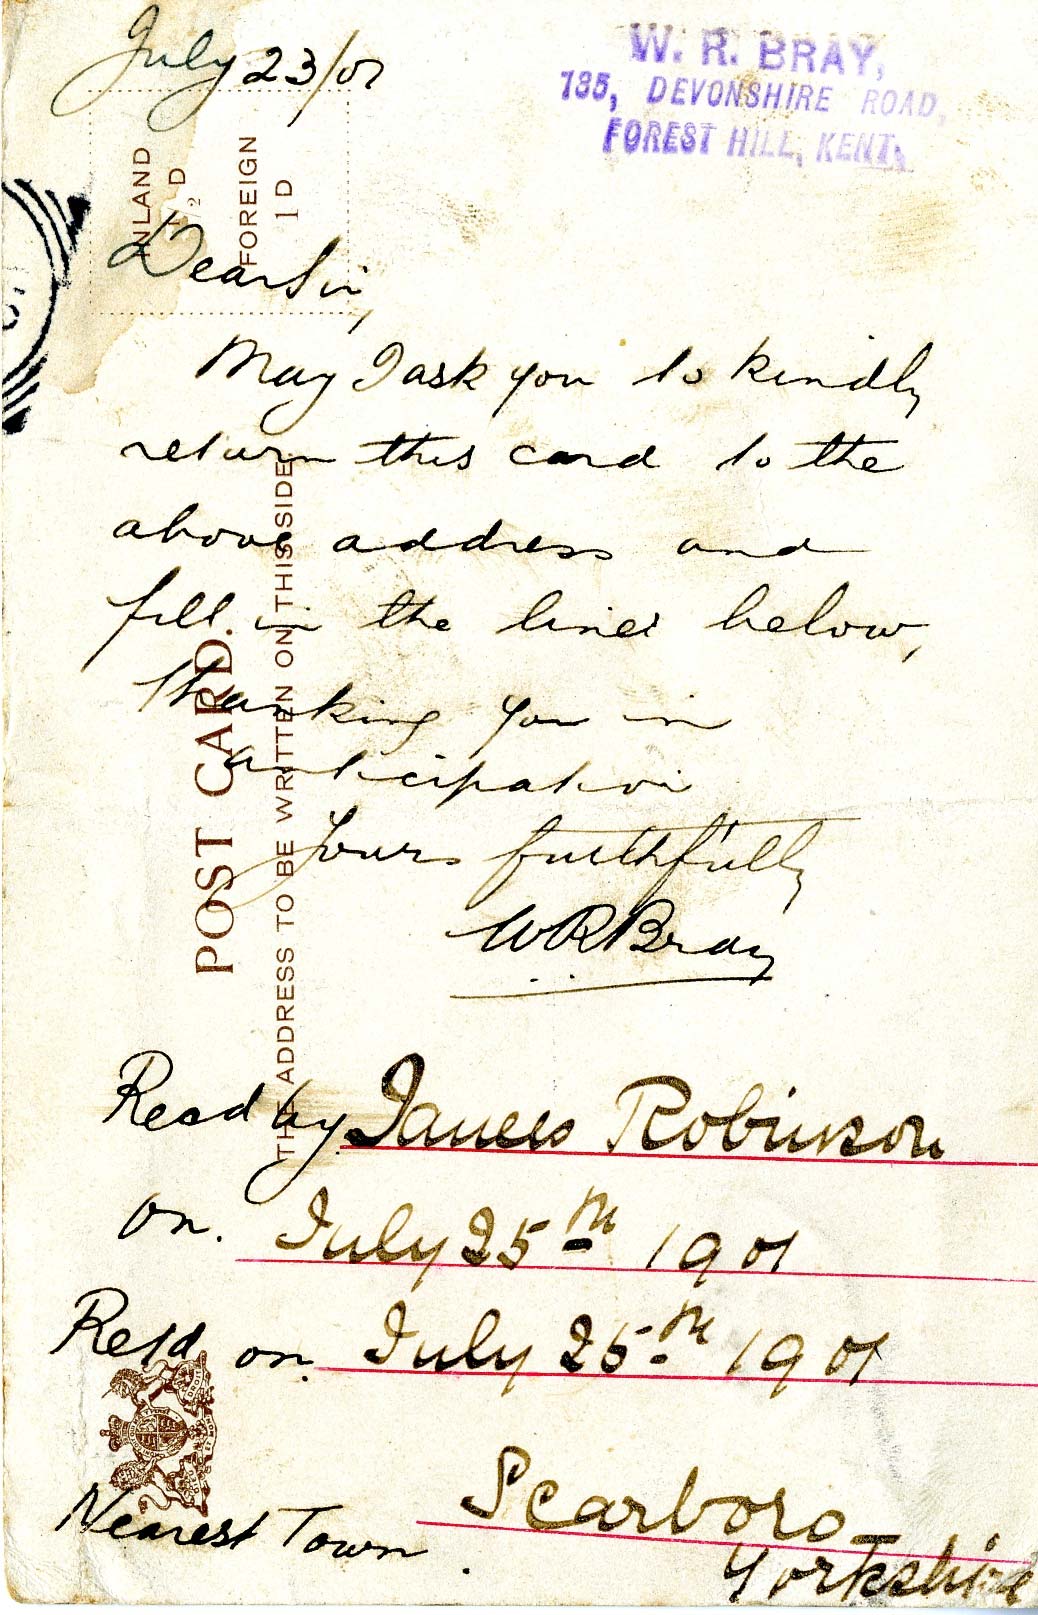 July 23/01
W. R. BRAY,
135, DEVONSHIRE ROAD,
FOREST HILL, KENT.
INLAND
½ D
FOREIGN
1 D
Dear Sir,
May I ask you to kindly
return this card to the
above address and
fill in the lines below,
thanking you in
anticipation
Yours faithfully
WRBray
POST CARD.
THE ADDRESS TO BE WRITTEN ON THIS SIDE
Recd by James Robinson
on. July 25th 1901
Retd on. July 25th 1901
Nearest Town. Scarboro
Yorkshire